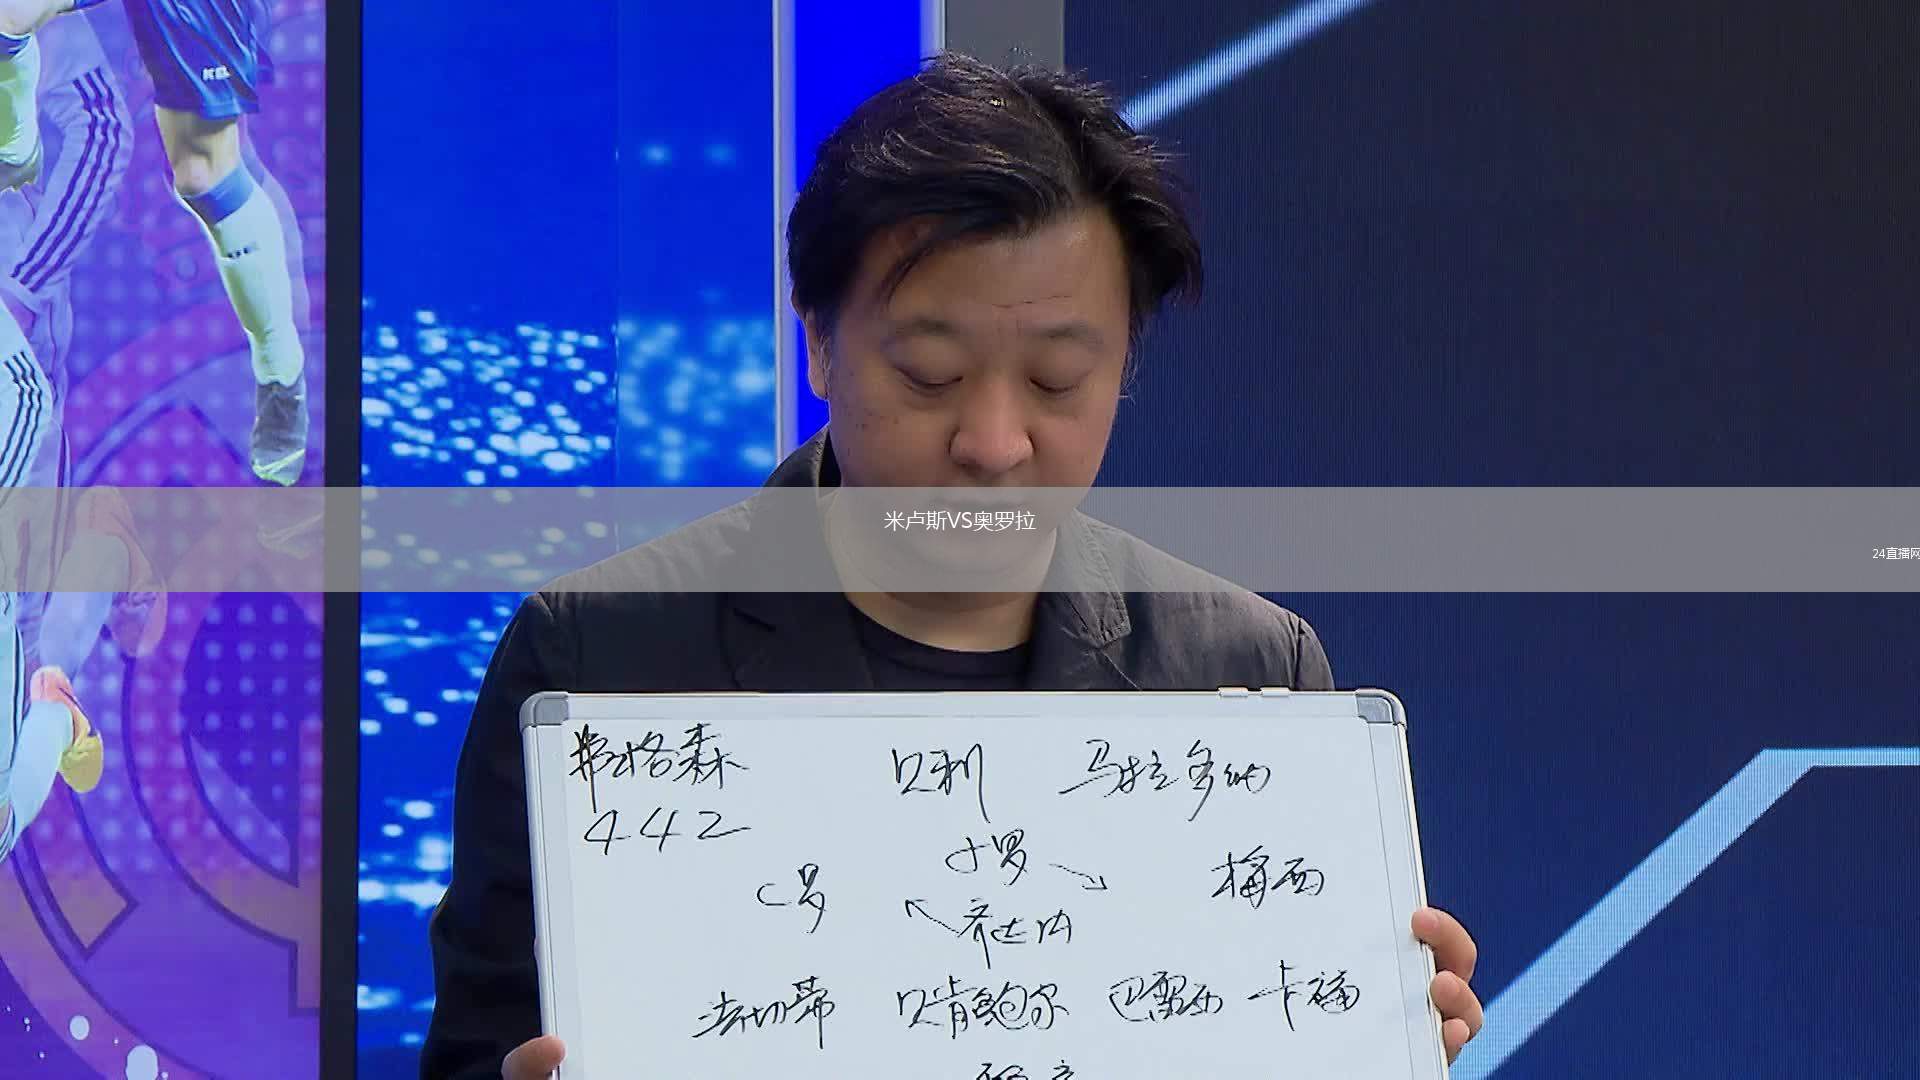 米卢斯VS奥罗拉
24直播网
弗格森 贝利 马拉多纳
442
小罗
C罗 梅西
齐达内
法切蒂 贝肯鲍尔 巴雷西 卡福